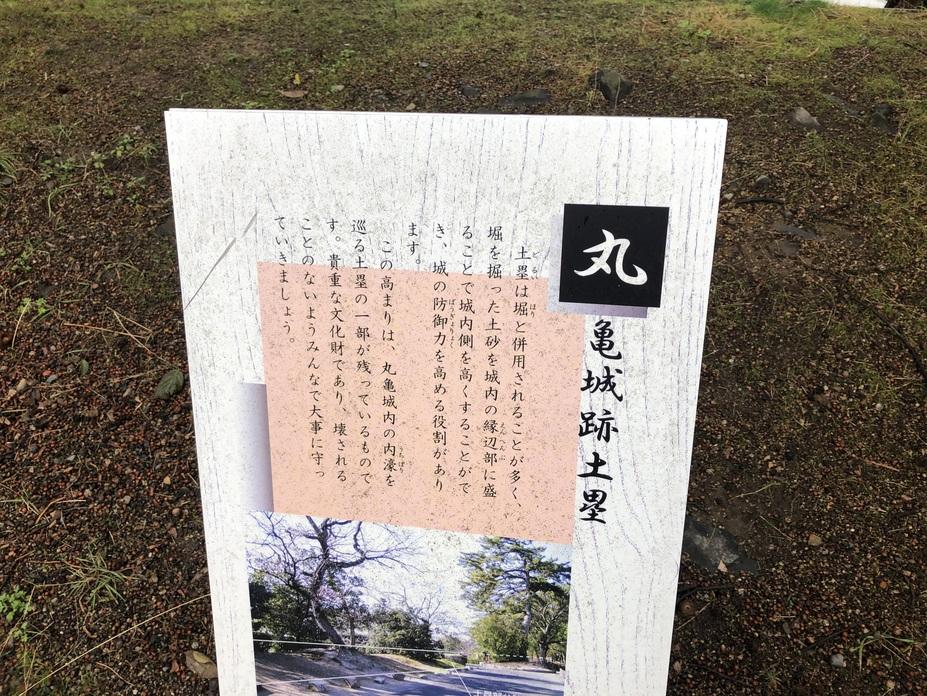 丸亀城跡土塁
土塁は堀と併用されることが多く、
堀を掘った土砂を城内の縁辺部に盛
ることで城内側を高くすることがで
き、城の防御力を高める役割があり
ます。
この高まりは、丸亀城内の内濠を
巡る土塁の一部が残っているもので
す。貴重な文化財であり、壊される
ことのないようみんなで大事に守っ
ていきましょう。